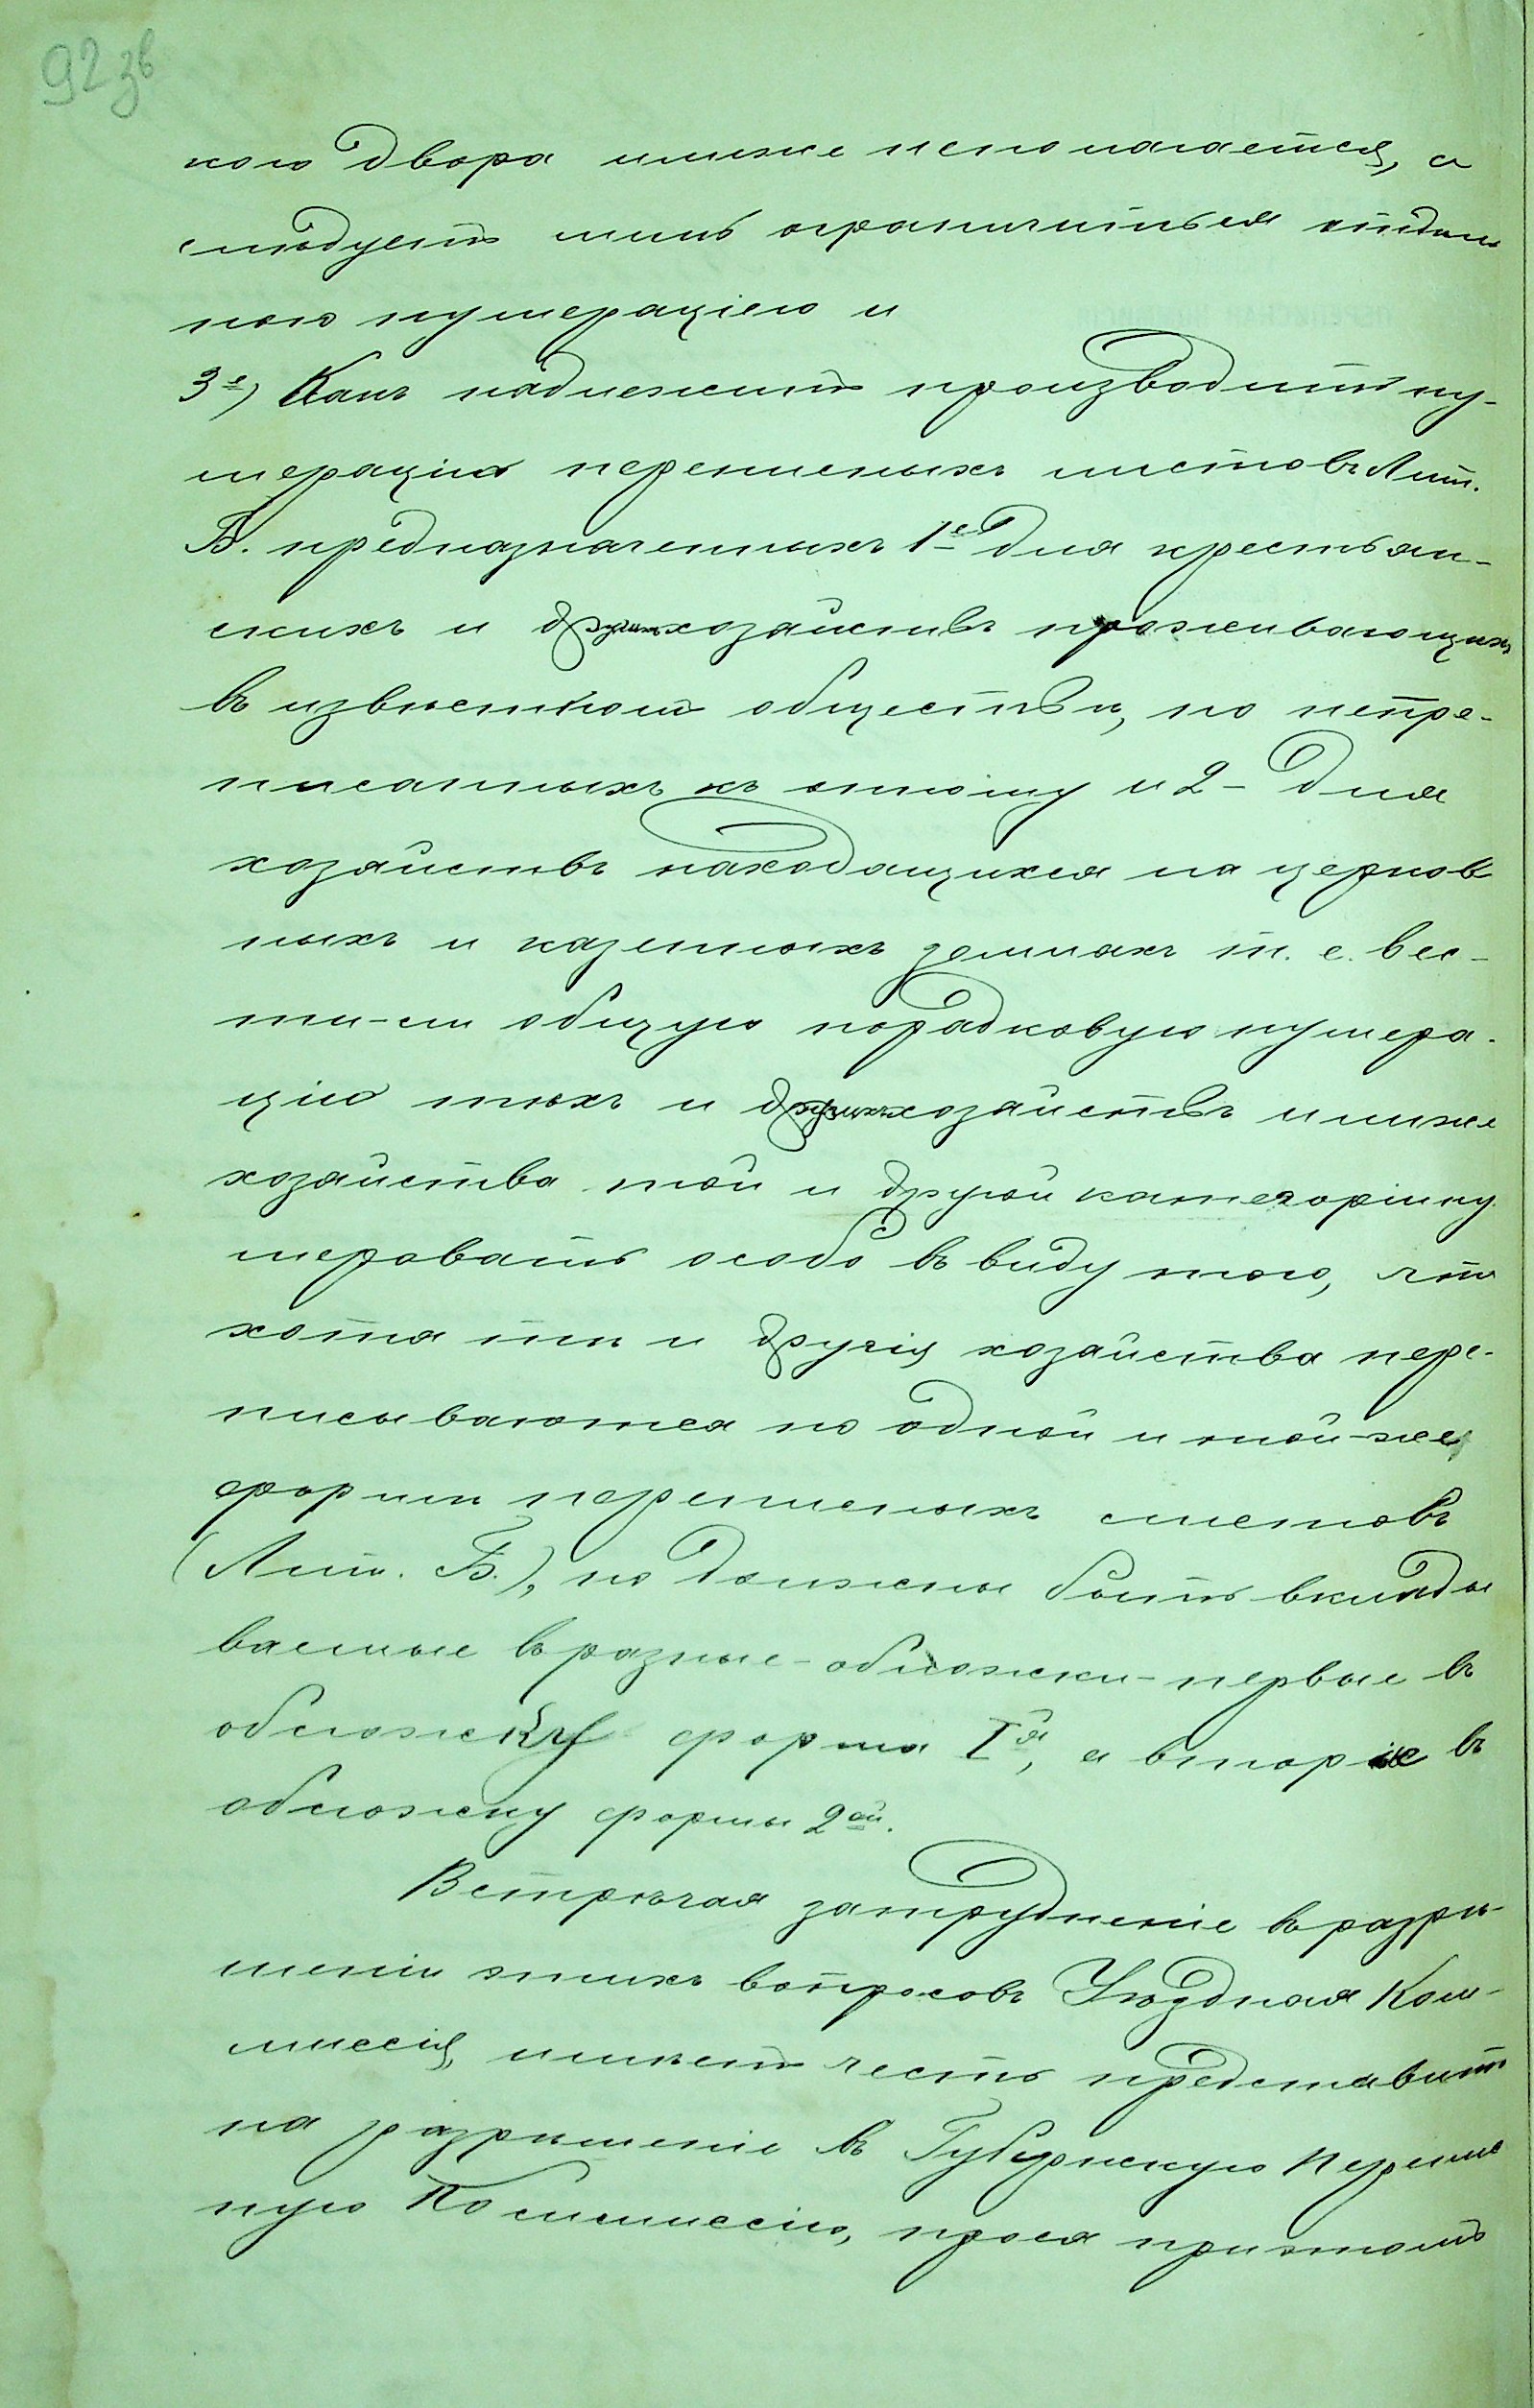 92 зв
кого двора илиже неполагается, а
слѣдуетъ лишь ограничиться отдѣль
ною нумерацiею и
3е) Какъ надлежитъ производить ну-
мерацiю переписныхъ листовъ Лит.
Б. предназначенныхъ 1е для крестьян-
скихъ и другихъ хозяйствъ проживающихъ
въ извѣстномъ обществѣ, но непри-
писанныхъ къ оному и 2- для
хозяйствъ находящихся на церков
ныхъ и казенныхъ земляхъ т. е. вес-
ти-ли общую порядковую нумера-
цiю тѣхъ и другихъ хозяйствъ илиже
хозяйства той и другой категорiи ну
меровать особо въ виду того, что
хотя тѣ и другiя хозяйства пере-
писываются по одной и той-же,
формѣ переписныхъ листовъ
(Лит. Б.), но должны быть вклады
ваемые въ разные-обложки-первые въ
обложку форма Iя, а вторые въ
обложку формы 2ой.
Встрѣчая затрудненiе въ разрѣ-
шенiи этихъ вопросовъ Уѣздная Ком-
миссiя, имѣетъ честь представить
на разрѣшенiе въ Губернскую Перепис
ную Коммиссiю, прося приэтомъ